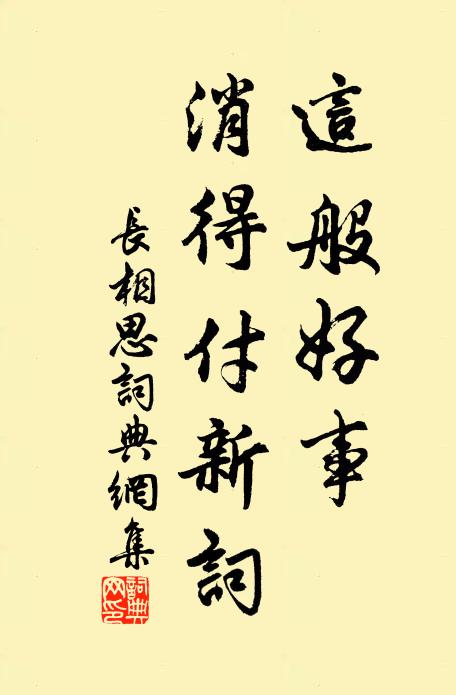 這般好事
消得付新詞
長相思詞典網集
詞典網印